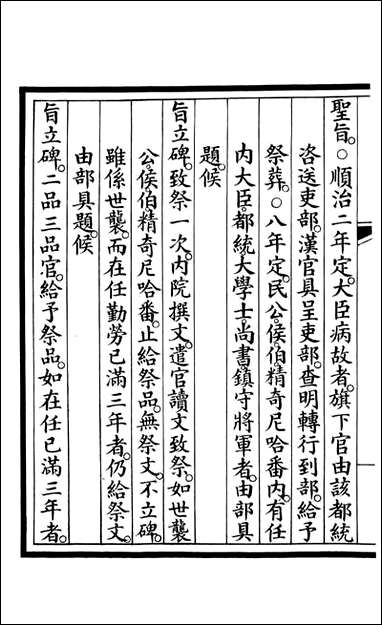 聖旨。○順治二年定。大臣病故者。旗下官由該都統
咨送吏部。漢官具呈吏部。查明轉行到部。給予
祭葬。○八年定。民公。侯。伯。精奇尼哈番。內。有任
內大臣。都統。大學士。尚書。鎮守將軍者。由部具
題。候
旨立碑。致祭一次。內院撰文。遣官讀文致祭。如世襲
公。侯。伯。精奇尼哈番。止給祭品。無祭文。不立碑。
雖係世襲。而在任勤勞已滿三年者。仍給祭文。
由部具題。候
旨立碑。二品三品官。給予祭品。如在任已滿三年者。